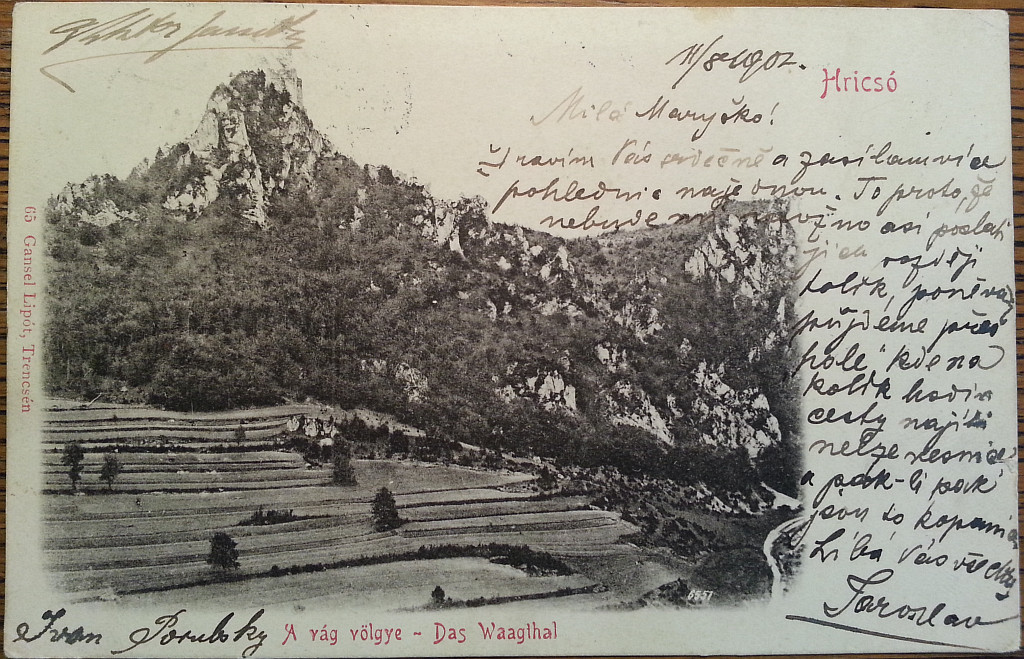 11/8 1902.
Hricsó
Milá Maryško!
Zdravím Vás srdečně a zasílam více
pohlednic najednou. To proto, že
nebude mi možno asi poslati
jich později
tolik, poněvaž
půjdeme přes
hole" kde na
kolik hodin
cesty najíti
nelze vesnice
a pak-li pak
jsou to kopanice
Líbá Vás vždy
Jaroslav
65 Gansel Lipót, Trencsén
6851
Ivan Porubsky
A vág völgye - Das Waagthal